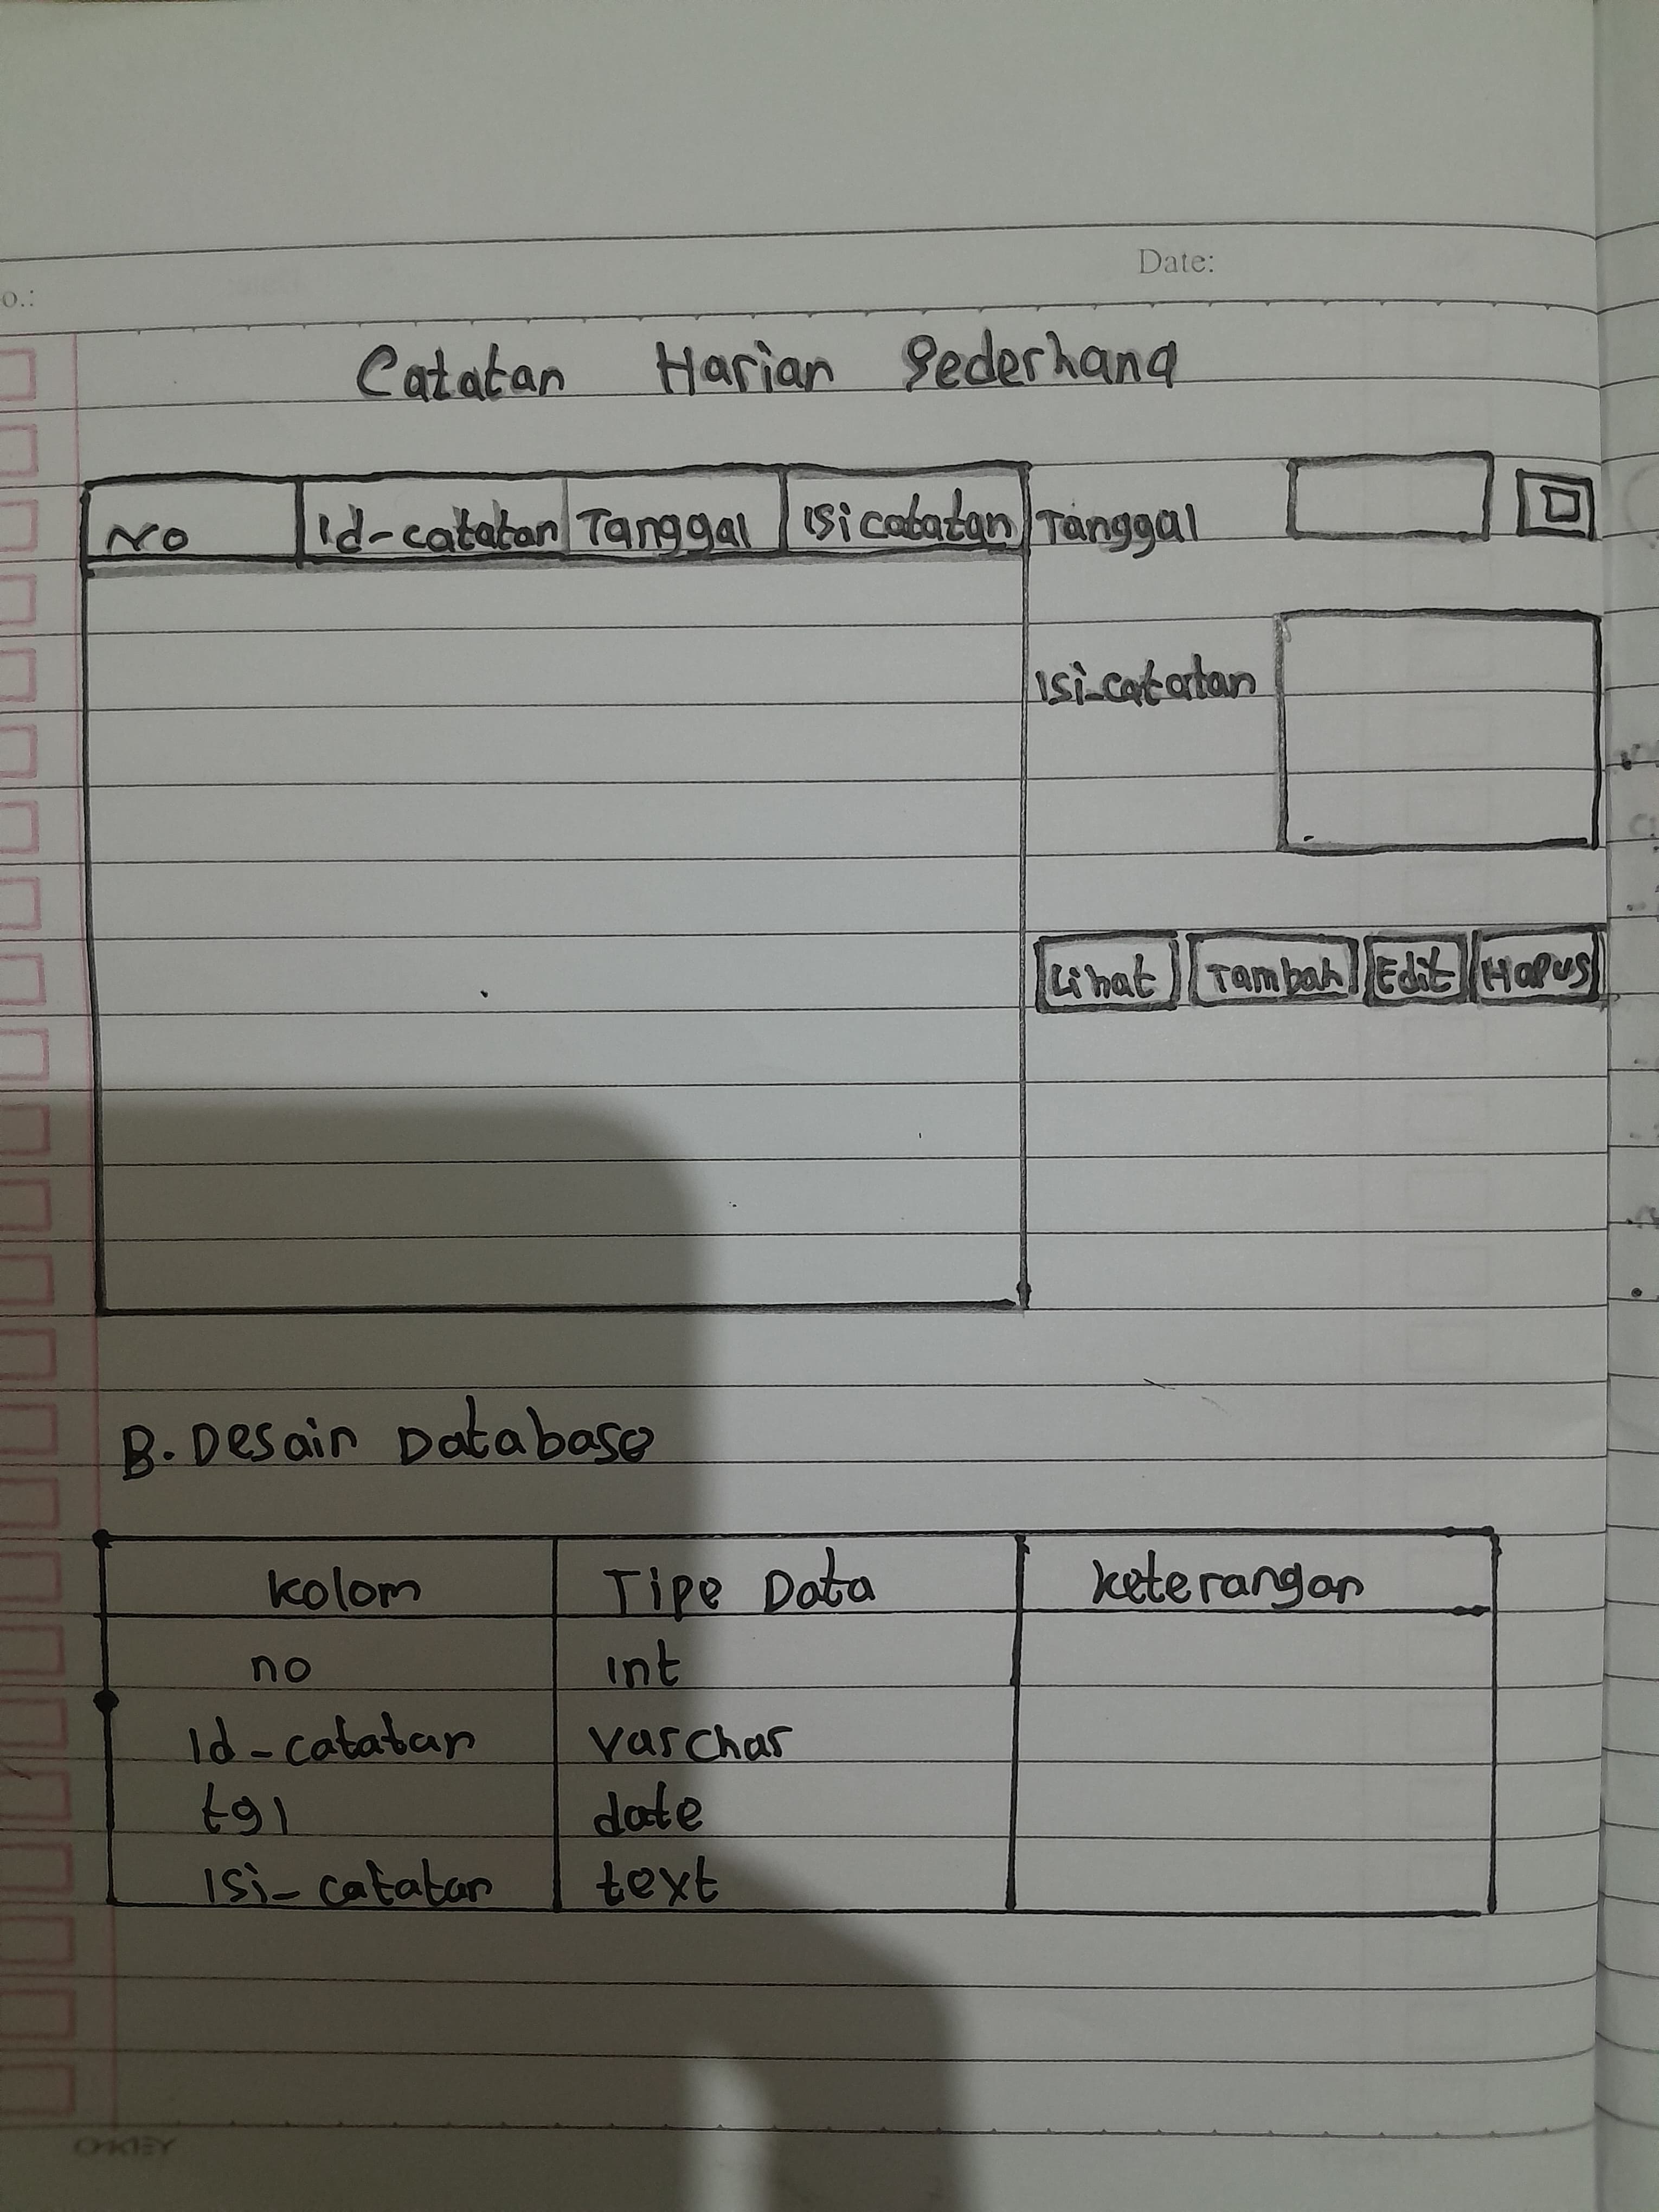 o.:
Date:
Catatan Harian Sederhana
No Id-catatan Tanggal Isi catatan Tanggal
Isi_catatan
Lihat Tambah Edit Hapus
B. Desain Database
Kolom Tipe Data Keterangan
no int
Id_catatan varchar
tgl date
Isi_catatan text
OKEY